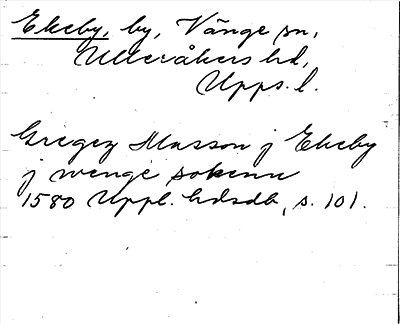 Ekeby, by, Vänge sn,
Ulleråkers hd,
Upps. l.
Gregerz Masson j Ekeby
j wenge sokenn
1580 Uppl. hdsdb, s. 101.